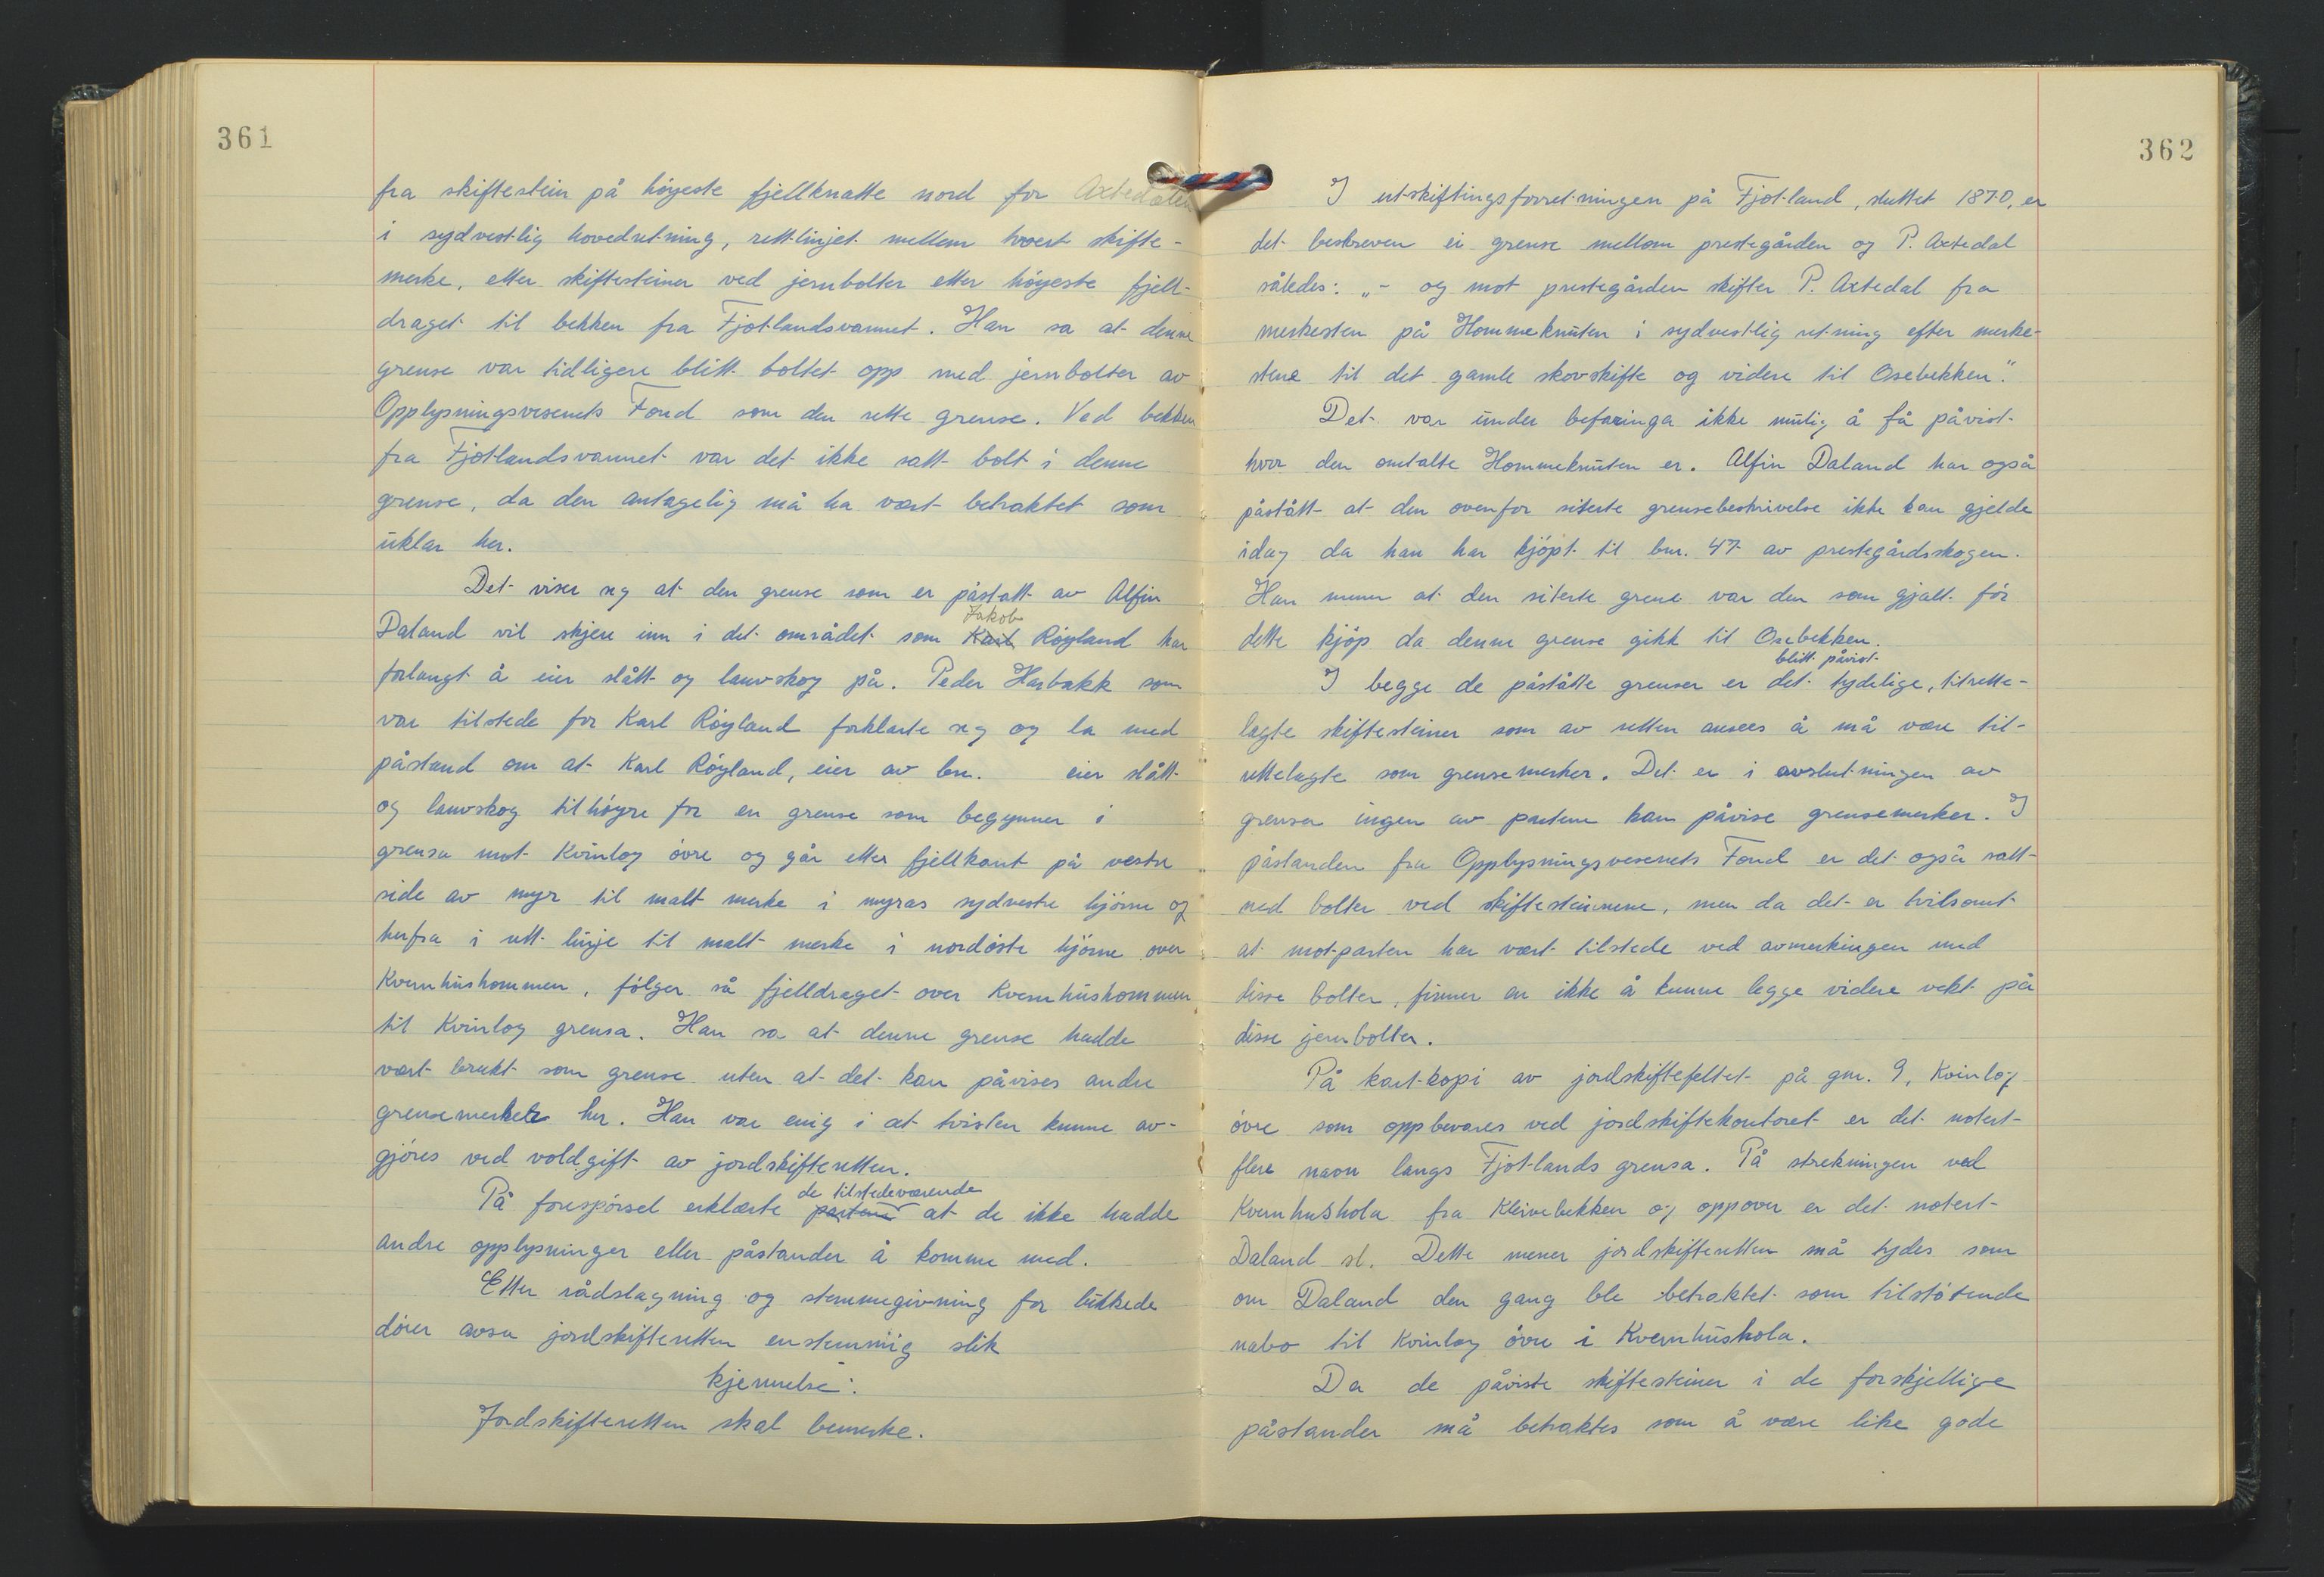 361
fra skiftestein på höyeste fjellknatte nord for Axtedalen
i sydvestlig hovedretning, rettlinjet mellem hvert skifte-
merke, etter skiftesteiner ved jernbolter etter höyeste fjell-
draget til bekken fra Fjotlandsvannet. Han sa at denne
grense var tidligere blitt boltet opp med jernbolter av
Opplysningsvesenets Fond som den rette grense. Ved bekken
fra Fjotlandsvannet var det ikke satt bolt i denne
grense, da den antagelig må ha vært betraktet som
uklar her.
Det viser seg at den grense som er påstått av Alfin
Jakob
Daland vil skjere inn i det området som Karl Röyland har
forlangt å eier slått og lauvskog på. Peder Harbakk som
var tilstede for Karl Röyland forklarte seg og la ned
påstand om at Karl Röyland, eier av bnr. eier slått
og lauvskog til höyre for en grense som begynner i
grensa mot Kvinlog övre og går etter fjellkant på vestre
side av myr til malt merke i myras sydvestre hjörne og
herfra i rett linje til malt merke i nordöste hjörne over
Kvernhushommen, fölger så fjelldraget over Kvernhushommen
til Kvinlog grensa. Han sa at denne grense hadde
vært brukt som grense uten at det kan påvises andre
grensemerker her. Han var enig i at tvisten kunne av-
gjöres ved voldgift av jordskifteretten.
de tilstedeværende
På forespörsel erklærte partene at de ikke hadde
andre opplysninger eller påstander å komme med.
Etter rådslagning og stemmegivning for lukkede
dörer avsa jordskifteretten enstemmig slik
kjennelse:
Jordskifteretten skal bemerke.
362
I utskiftingsforretningen på Fjotland, sluttet 1870, er
det beskreven ei grense mellom prestegården og P. Axtedal
således: „- og mot prestegården skifter P. Axtedal fra
merkesten på Hommeknuten i sydvestlig retning efter merke-
stene til det gamle skovskifte og videre til Osebekken."
Det var under befaringa ikke mulig å få påvist
hvor den omtalte Hommeknuten er. Alfin Daland har også
påstått at den ovenfor siterte grensebeskrivelse ikke kan gjelde
idag da han har kjöpt til bnr. 47 av prestegårdsskogen.
Han mener at den siterte grense var den som gjalt för
dette kjöp da denne grense gikk til Osebekken.
blitt påvist
I begge de påståtte grenser er det tydelige, tilrette-
lagte skiftesteiner som av retten ansees å må være til-
rettelagte som grensemerker. Det er i avslutningen av
grensen ingen av partene kan påvise grensemerker. I
påstanden fra Opplysningsvesenets Fond er det også satt
ned bolter ved skiftesteinene, men da det er tvilsomt
at motparten har vært tilstede ved avmerkingen med
disse bolter, finner en ikke å kunne legge videre vekt på
disse jernbolter.
På kart-kopi av jordskiftefeltet på gnr. 9, Kvinlog
övre som oppbevares ved jordskiftekontoret er det notert
flere navn langs Fjotlands grensa. På strekningen ved
Kvernhushola fra Kleivebekken og oppover er det notert
Daland sl. Dette mener jordskifteretten må tydes som
om Daland den gang ble betraktet som tilstötende
nabo til Kvinlog övre i Kvernhushola.
Da de påviste skiftesteiner i de forskjellige
påstander må betraktes som å være like gode